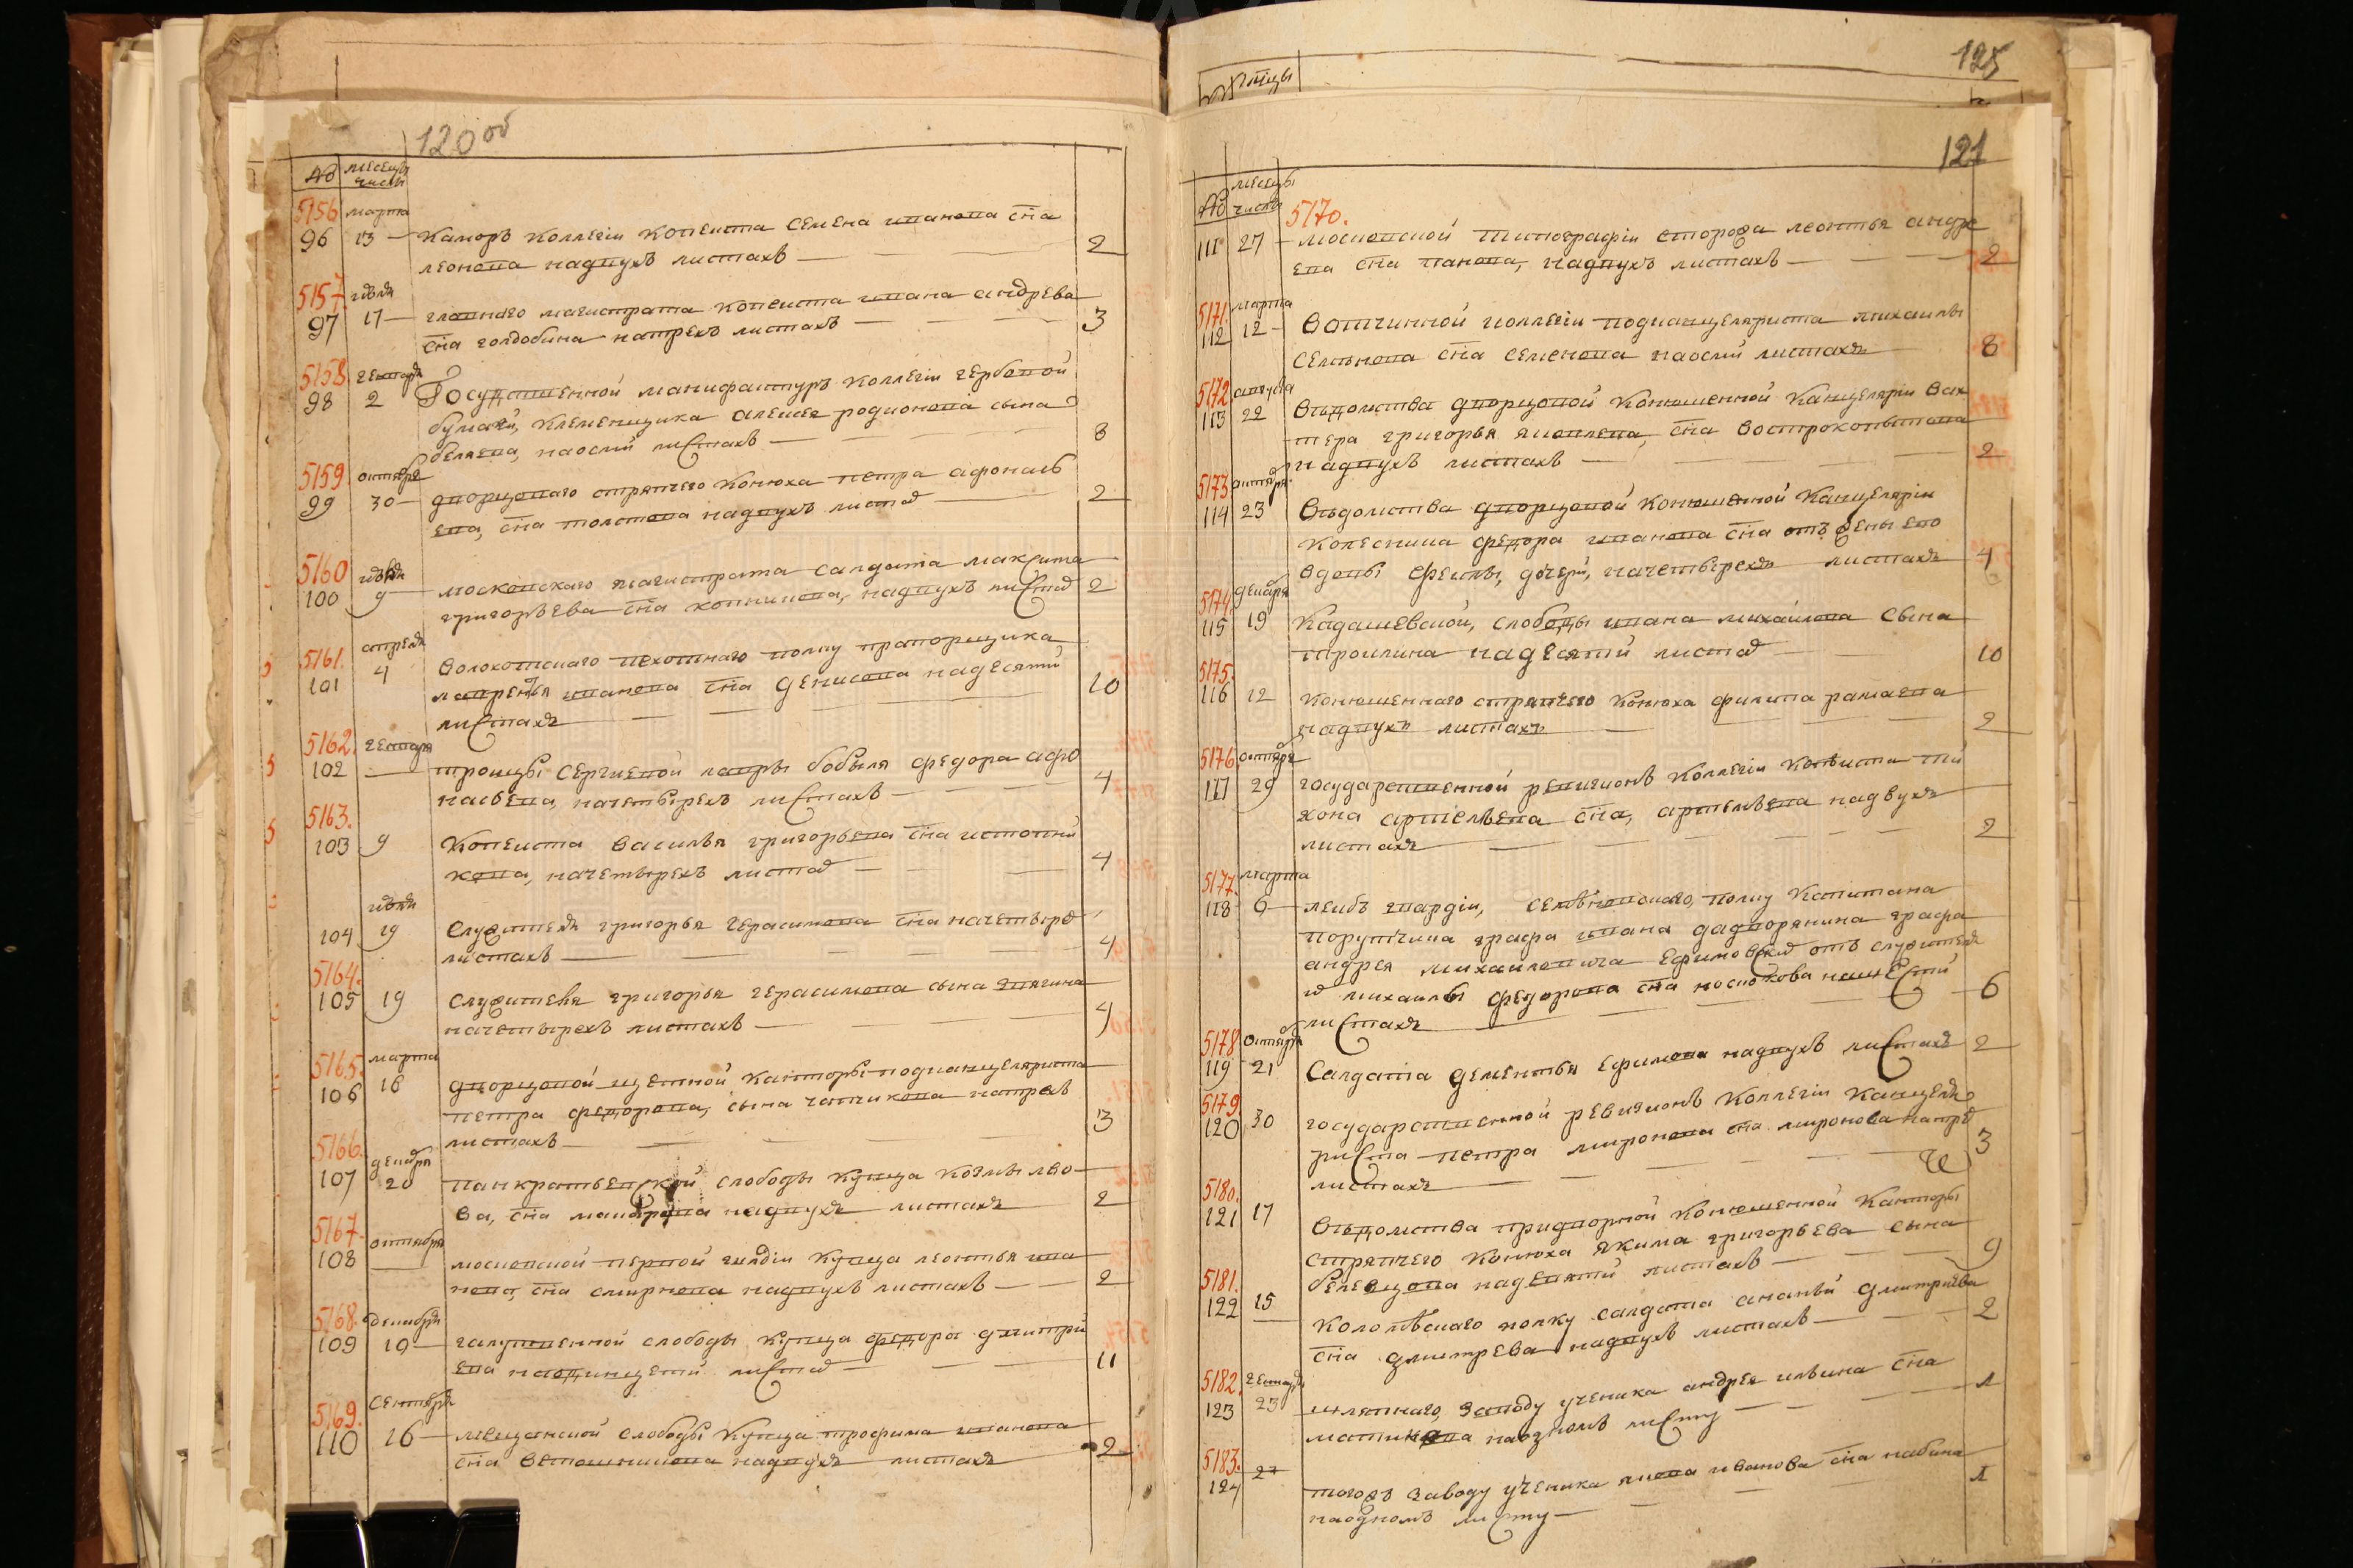 120 об
№ месецы числы
5156 марта
96 13 камеръ коллегіи копеиста семена иванова сна
леонова надвухъ листахъ 2
5157 июля
97 17 главнаго магистрата копеиста ивана андреева
сна голдобина натрехъ листахъ 3
5158 генваря
98 2 Государственной манифактуръ коллегіи гербовой
бумаги, клеменщика алексея родионова сына
беляева, наосми листахъ 8
5159 октября
99 30 дворцоваго стряпчего конюха петра афонась
ева, сна толстова надвухъ листа 2
5160
100 9 московскаго магистрата салдата максима
григоръева сна надвухъ листа 2
5161. апреля
101 4 пехотнаго полку прапорщика
лаврентья иванова сна денисова надесяти
листахъ 10
5162. генваря
102 троицы сергиевой лавры бобыля федора афо
насьева, начетырехъ листахъ 4
5163.
103 9 Копеиста василья григорьева сна истопни
кова, начетырехъ листа 4
104 19 служителя григорья герасимова сна начетыре
листахъ 4
5164.
105 19 служителя григорья герасимова сына
начетырехъ листахъ 4
5165. марта
106 18 дворцовой канторы подканцеляриста
петра федорова, сына натрехъ
листахъ 3
5166. декабря
107 20 панкратьевской слободы купца козмы лво
ва, сна надвухъ листахъ 2
5167. октября
108 московской первой гилдіи купца леонтья ива
нова, сна смирнова надвухъ листахъ 2
5168. декабря
109 19 слободы купца федора дмитри
ева наодинцети листа 11
5169. Сентября
110 16 мещанской слободы купца трофима иванова
сна ветошникова надвухъ листахъ 2
125
121
№ месецы числы
5170.
111 27 московской типографіи сторожа леонтья андре
ева сна панова, надвухъ листахъ 2
5171. марта
112 12 вотчинной коллегіи подканцеляриста михаилы
сна семенова наосми листахъ 8
5172 августа
113 22 вѣдомства дворцовой конюшенной канцеляріи вах
тера григорья яковлева, сна вострокопытова
надвухъ листахъ 2
5173 октября
114 23 вѣдомства дворцовой конюшенной канцеляріи
колесника федора иванова сна отъ жены ево
вдовы феклы, дочери, начетырехъ листахъ 4
5174. декабря
115 19 Кадашевской, слободы ивана михаилова сына
надесяти листа 10
5175.
116 12 конюшеннаго стряпчего конюха филипа рамаева
надвухъ листахъ 2
5176 октября
117 29 государственной ревизионъ коллегіи копѣиста ти
хона артемьева сна, артемьева надвухъ
листахъ 2
5177. марта
118 6 леибъ гвардіи, полку капитана
порутчика графа ивана дадворянина графа
андрея михаиловича отъ служителя
михаилы федорова сна нашести
листахъ 6
5178 октября
119 21 Салдата дементья ефимова надвухъ листахъ 2
5179.
120 30 государственной ревизионъ коллегіи канцеля
риста петра миронова сна миронова натре
листахъ 3
5180.
121 17 вѣдомства придворной конюшенной канторы
стряпчего конюха якима григорьева сына
надевяти листахъ 9
5181.
122 15 полку салдата ананьи дмитриева
сна дмитрева надвухъ листахъ 2
5182. генваря
123 23 шляпнаго, заводу ученика андрея ильина сна
наодномъ листу 1
5183.
124 тогожъ заводу ученика якова иванова сна
наодномъ листу 1